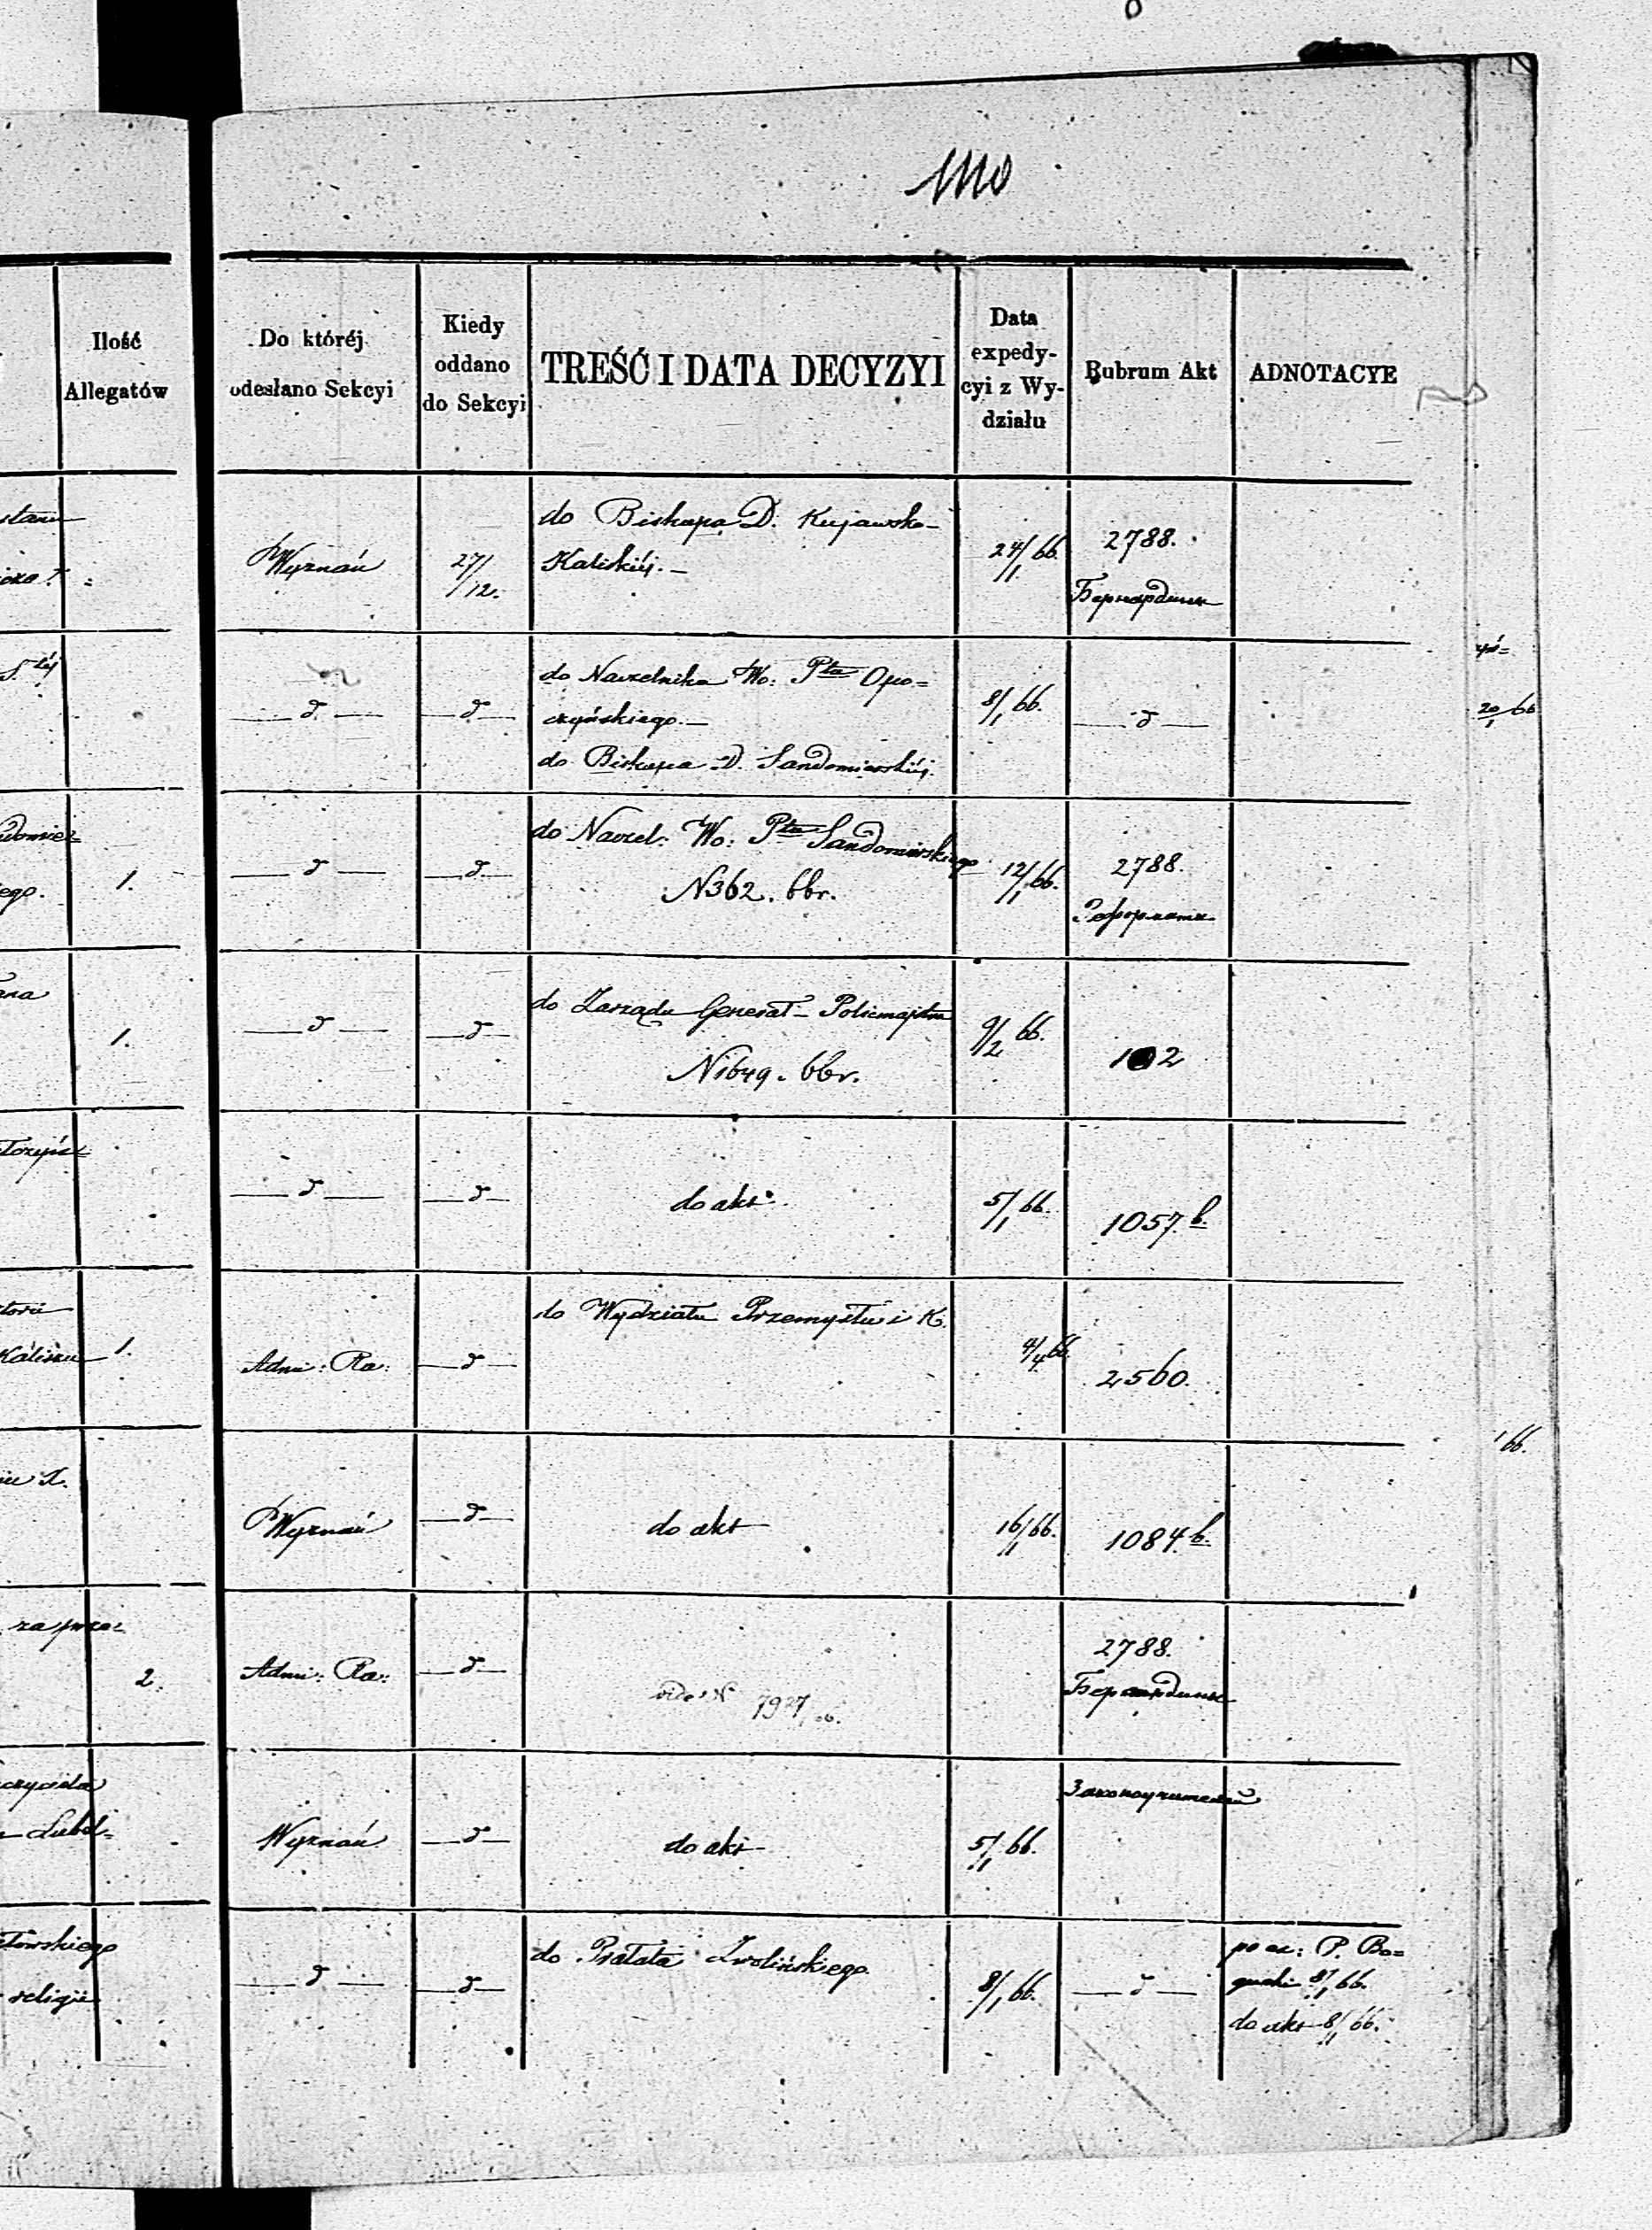 1110
Ilość
Allegatów
Do któréj
odesłano Sekcyi
Kiedy
oddano
do Sekcyi
TREŚĆ I DATA DECYZYI
Data
expedy-
cyi z Wy-
działu
Rubrum Akt
ADNOTACYE
Wyznań
27/12.
do Biskupa D. Kujawsko-
Kaliskiéj.—
24/1 66.
2788.
Бернардины
—d—
—d—
do Naczelnika Wo: Ptu Opo=
czyńskiego.—
do Biskupa D. Sandomierskiéj.
8/1 66.
—d—
20/1 66
1.
—d—
—d—
do Naczel: Wo: Ptu Sandomierskiego
N362. 66r.
12/1 66.
2788.
Реформаты
1.
—d—
—d—
do Zarządu Generał-Policmajstra
N1649. 66r.
9/2 66.
102
—d—
—d—
do akt.
5/1 66.
1057 b.
Kaliszu
1.
Admi: Ra:
—d—
do Wydziału Przemysłu i K.
4/4 66.
2560.
Wyznań
—d—
do akt
16/1 66.
1084 b.
66.
2.
Admi: Ra:
—d—
vide N 7927/66.
2788.
Бернардины
Lubel=
Wyznań
—d—
do akt
5/1 66.
Законоучителей
religii
—d—
—d—
do Prałata Zwolińskiego.
8/1 66.
—d—
P. Bo=
8/1 66.
do akt 8/1 66.